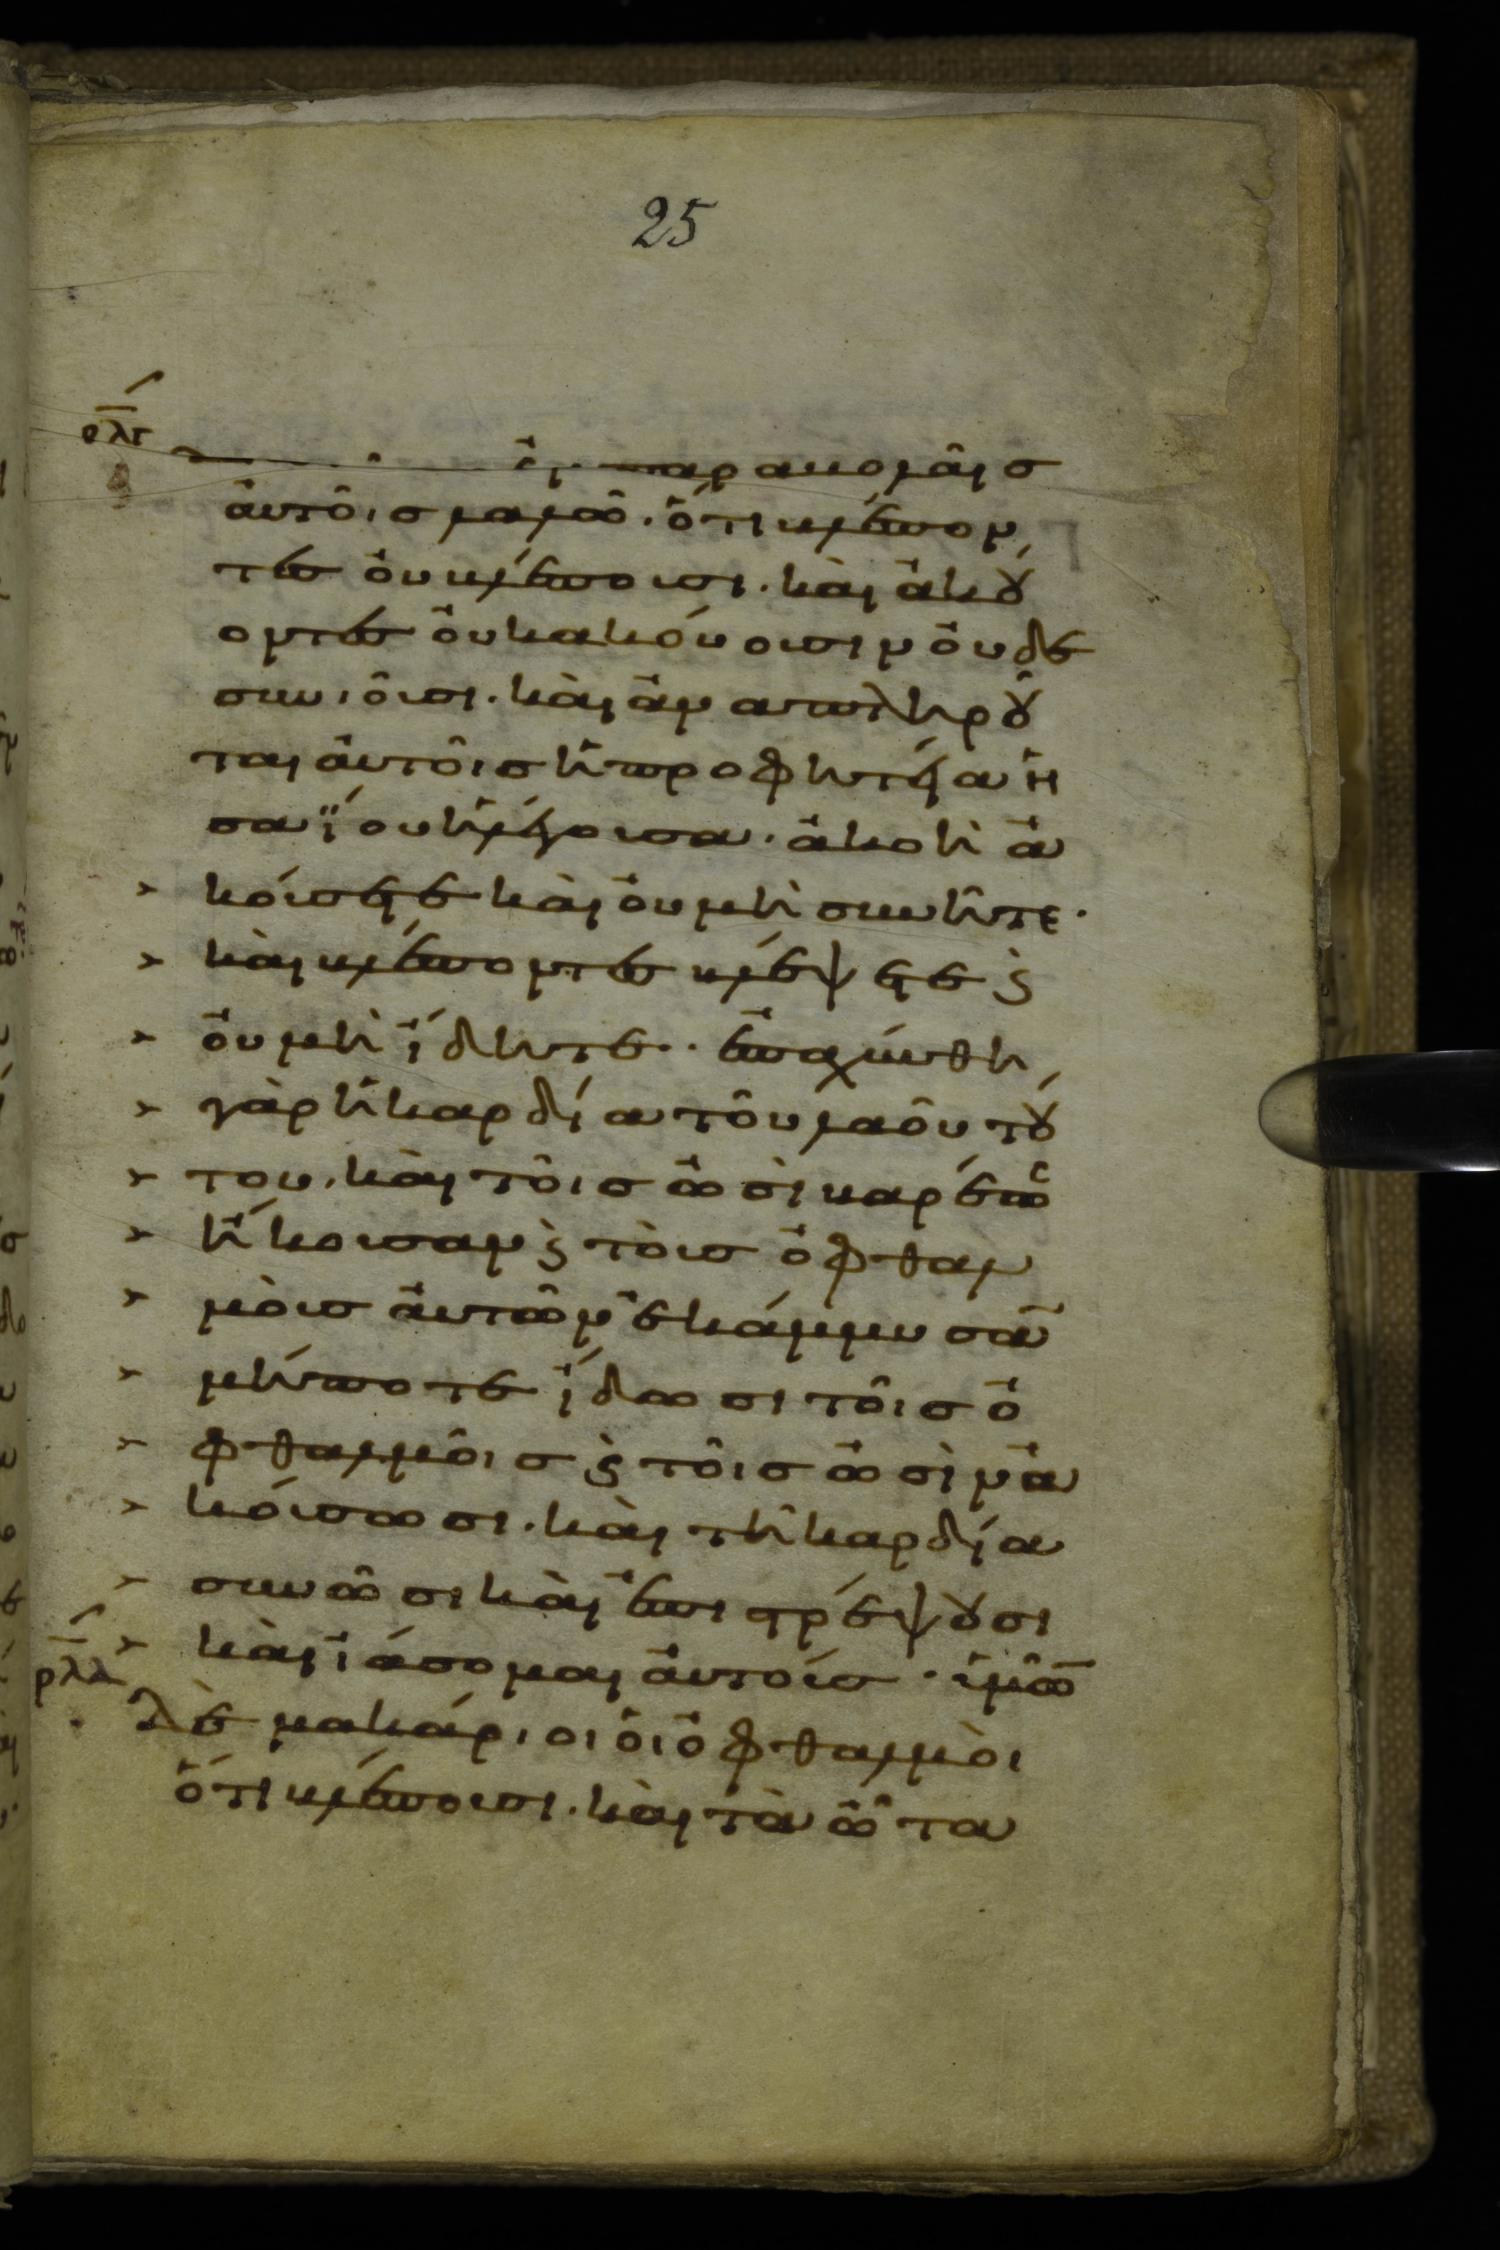 25
ρλγ
ἐν παραβολαῖς
ἀυτοῖς λαλῶ. ὅτι βλέπον
τες ὀυ βλέπουσι. κὰι ἀκού
οντες ὀυκ ακόυουσιν ὀυδε
συνιοῦσι. κὰι ἀναπληροῦ
ται ἀυτοῖς ἡ προφητεία ἡ
σαΐου ἡ λέγουσα. ἀκοὴ ἀ
κόυσετε κὰι ὀυ μὴ συνῆτε.
κὰι βλέποντες βλέψετε ϗ
ὀυ μὴ ἴδητε. ἐπαχύνθη
γὰρ ἡ καρδία τοῦ λαοῦ τού
του, κὰι τοῖς ὠσὶ βαρέως
ἤκουσαν ϗ τὸυς ὀφθαλ
μὸυς ἀυτῶν ἐκάμμυσαν
μήποτε ἴδωσι τοῖς ὀ
φθαλμοῖς ϗ τοῖς ὠσὶν ἀ
κόυσωσι. κὰι τῆ καρδία
συνῶσι κὰι ἐπιστρέψουσι
κὰι ἰάσομαι ἀυτοίς. ὑμῶν
ρλδ
δὲ μακάριοι ὁι ὀφθαλμὸι
ὅτι βλέπουσι. κὰι τὰ ὦτα